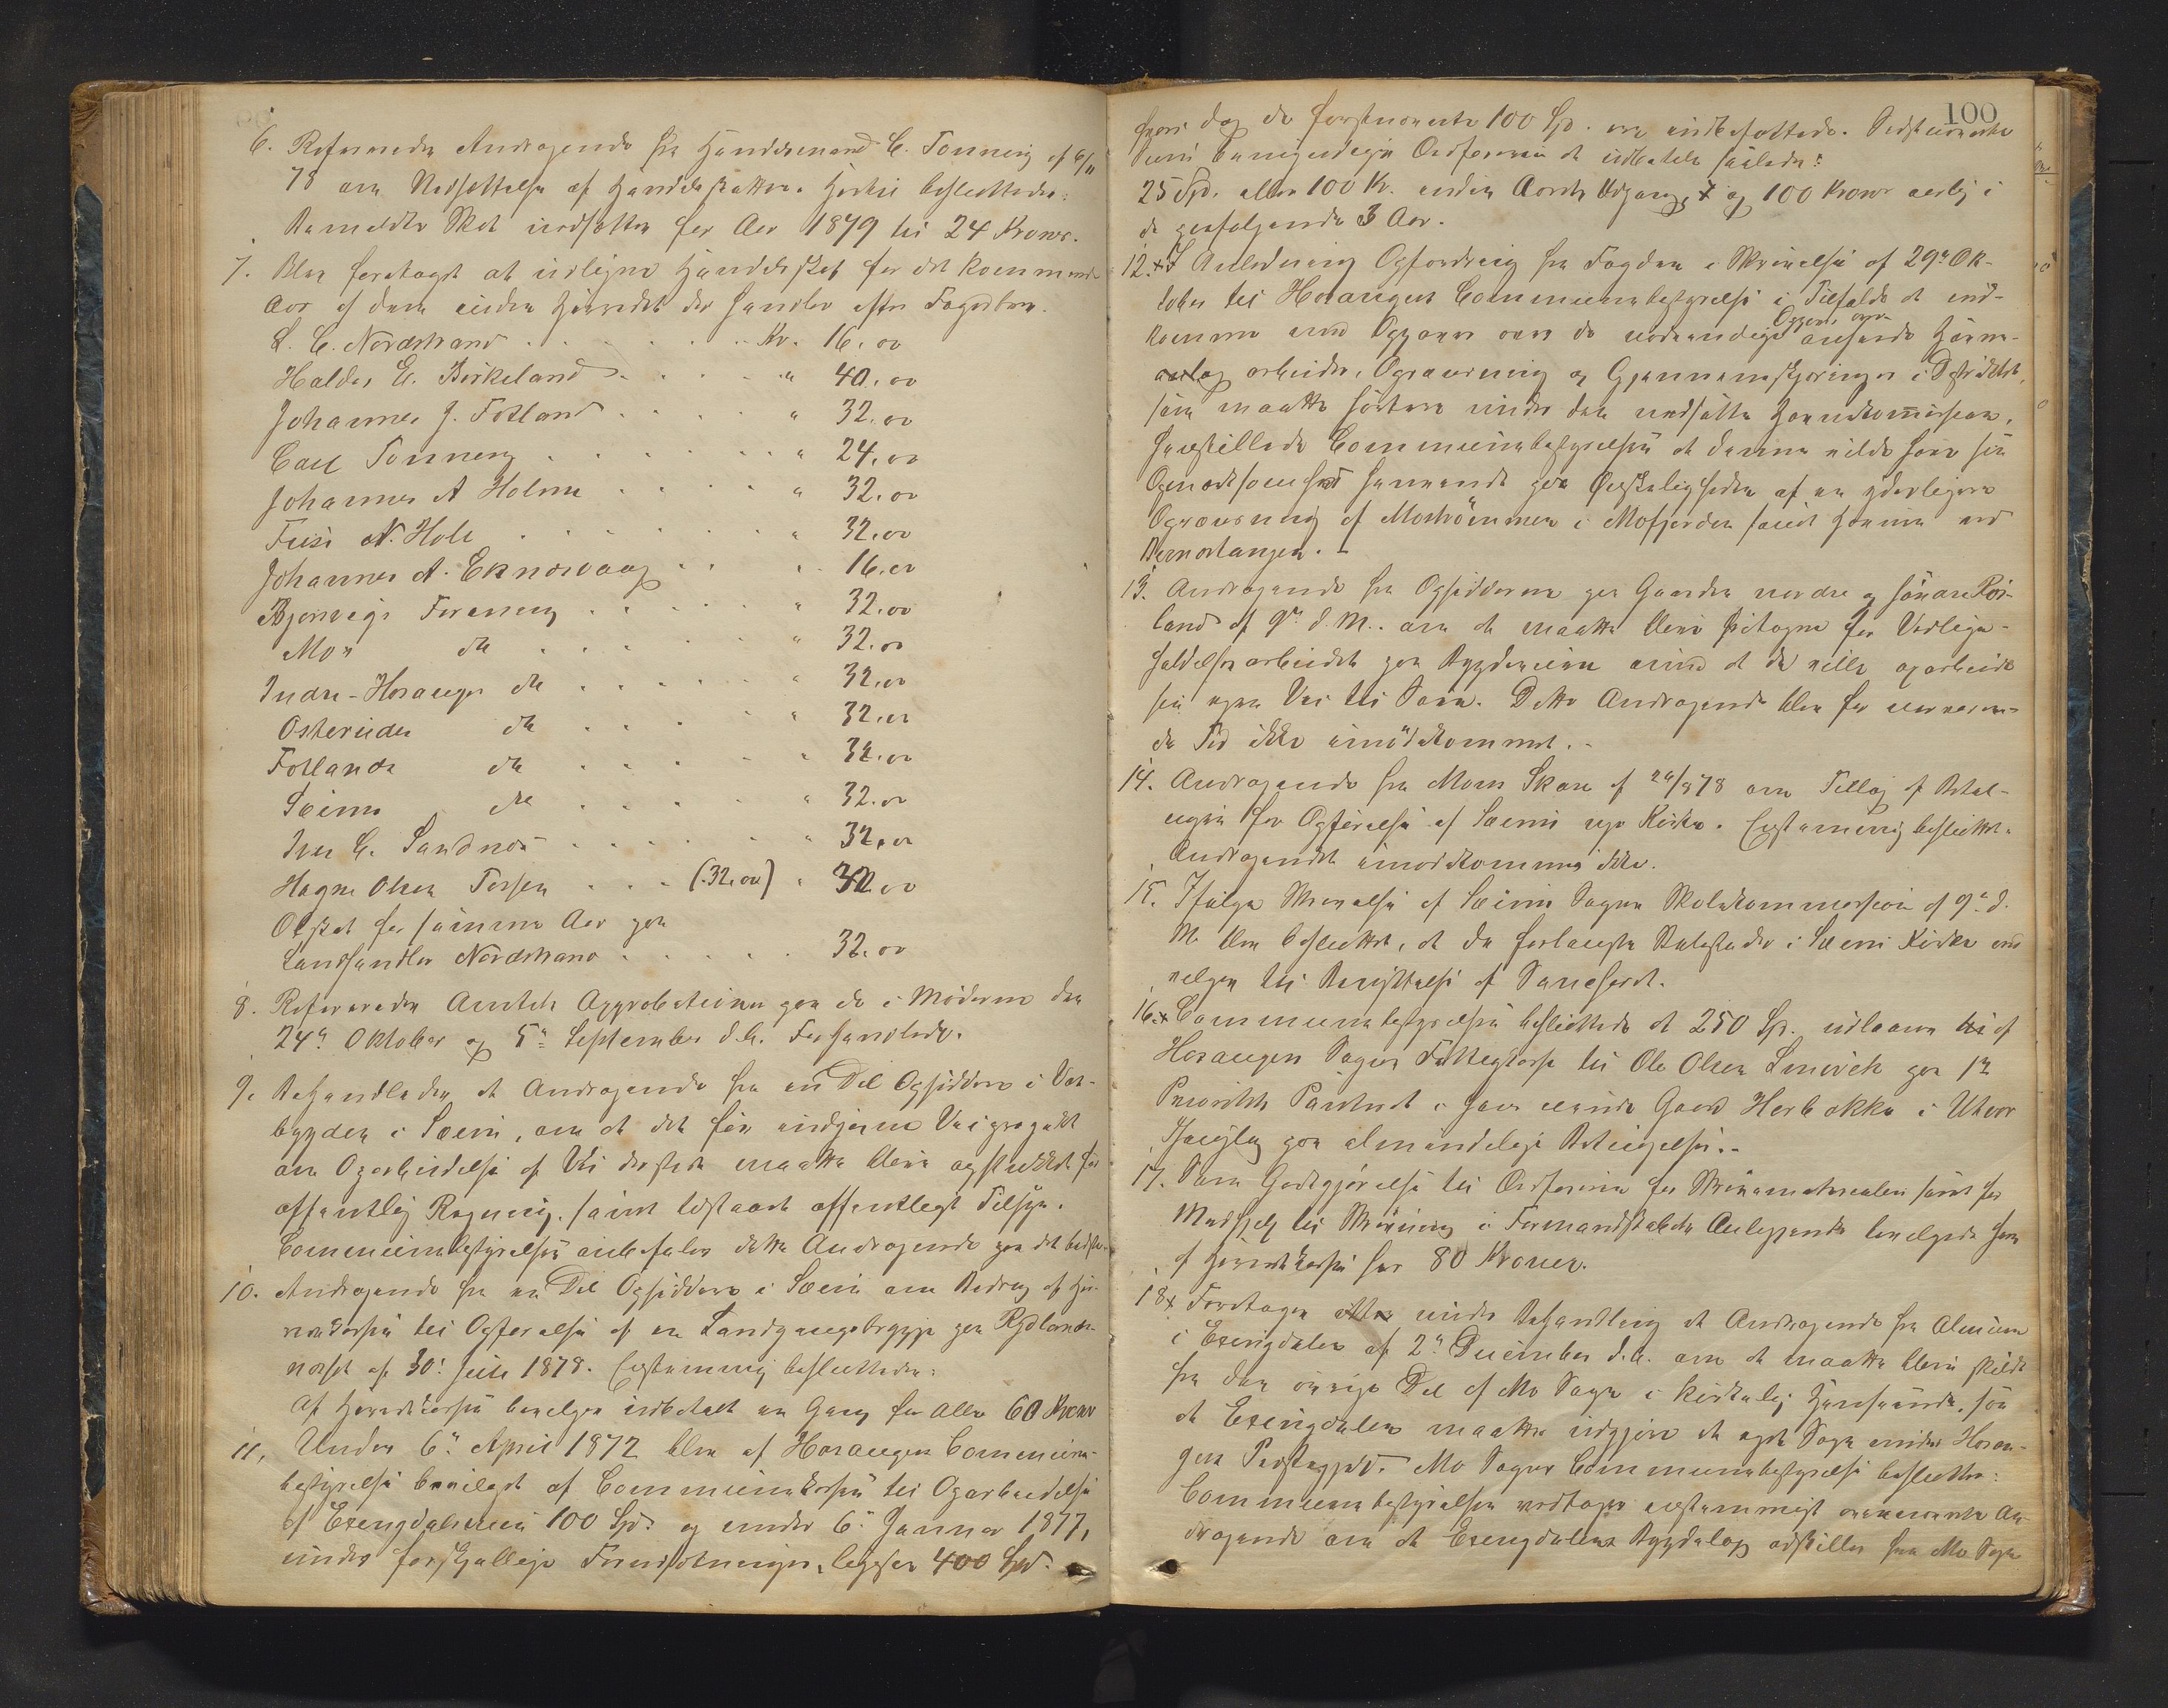 6. Refereredes Andragende fra Handelsmand C. Tonning af 6/11
78 om Nedsættelse af Handelsskatten. Hertil besluttedes:
Anmeldte Skat nedsættes for Aar 1879 til 24 Kroner.
7. Blev foretaget at udligne Handelsskat for det kommende
Aar af dem inden Herredet der handler efter Fogedbrev.
L. C. Nordstrand . . . Kr. 16.00
Haldor E. Birkeland . . . " 40.00
Johannes J. Fotland . . . " 32.00
Carl Tonning . . . " 24.00
Johannes A Holme . . . " 32.00
N. Hole . . . " 32.00
Johannes A. Eknesvaag . . . " 16.00
Bjørsvigs Forening . . . " 32.00
Mos do . . . " 32.00
Indre-Hosanger do . . . " 32.00
Ostereides do . . . " 32.00
Fotlands do . . . " 32.00
Sæims do . . . " 32.00
Iver E. Sandnes . . . " 32.00
Magne Olsen . . . (32.00) " 32.00
Ølskat for samme Aar paa
Landhandler Nordstrand . . . 32.00
8. Refereredes Amtets Approbationer paa de i Møderne den
24de Oktober og 5te September d.A. Forhandlede.
9. Behandledes et Andragende fra en Del Opsiddere i
bygden i Sæim, om at det
om Oparbeidelse af Vei dersteds maatte blive opstukket for
offentlig Regning, samt tilstaaet offentligt Tilsyn.
Communebestyrelsen anbefaler dette Andragende paa det bedste.
10. Andragende fra en Del Opsiddere i Sæim om Bidrag af Her-
redskassen til Opførelse af en Landgangsbrygge paa Rydlands-
noset af 30te Juli 1878. Eenstemmig besluttedes:
Af Herredskassen bevilges udbetalt en Gang for Alle 60 Kroner
11. Under 6te April 1872 blev af Hosangers Commune-
bestyrelse bevilget af Communekassen til Oparbeidelse
af Exingdalsveien 100 Spd. og under 6te Januar 1877,
under forskjellige Forudsætninger, ligesaa 400 Spd.
100
hvori dog de førstnævnte 100 Spd. ere indbefattede. Sidstnævnte
Sum Ordføreren at udbetale saaledes:
25 Spd. eller 100 Kr. inden Aarets Udgang, og 100 Kroner aarlig i
de paafølgende 3 Aar.
12. I Anledning Opfordring fra Fogden i Skrivelse af 29de Ok-
tober til Hosangers Communebestyrelse i Tilfælde at ind-
komme med Opgaver over de nødvendige ansete Havne-
anlæg arbeider, Oprensning og Gjennemskjæringer i Distriktet,
som maatte sortere under den nedsatte Havnekommission,
henstillede Communebestyrelsen at denne vilde have sin
Opmærksomhed henvendt paa Ønskeligheden af en yderligere
Oprensning af Mostrømmen i Mofjorden samt Havnen ved
Bernestangen.
13. Andragende fra Opsidderne paa Gaarden nordre og søndre
land af 9de d.M. om at maatte blive fritagne for Vedlige-
holdelsesarbeidet paa Bygdeveien imod at de ville oparbeide
sin egen Vei til Søen. Dette Andragende blev for nærværen-
de Tid ikke imødekommet.
14. Andragende fra Mons Skare af 24/8 78 om Tillæg af Betal-
ingen for Opførelse af Sæims nye Kirke. Eenstemmig besluttet:
Andragendet imødekommes ikke.
15. Ifølge Skrivelse af Sæims Sogns Skolekommission af 9de d.
M. blev besluttet, at de forlangte i Sæims Kirke
til Benyttelse af
16. Communebestyrelsen besluttede at 250 Spd. udlaanes af
Hosangers Sogns Fattigkasse til Ole Olsen paa 1ste
Prioritets Panteret i hans Gaard Herlokke i
paa almindelige Betingelser.
17. Som Godtgjørelse til Ordføreren for Skrivematerialer samt for
Medhjelp til Skrivning i Formandskabets Anliggender bevilgedes ham
af Herredskassen for 80 Kroner.
18. Foretages under Behandling et Andragende fra Almuen
i Exingdalen af 2den December d.A. om at maatte blive skildt
fra den øvrige Del af Mo Sogn i kirkelig Henseende, saa
at Exingdalen maatte udgjøre et eget Sogn under Hosan-
gers Præstegjeld. Mo Sogns Communebestyrelse besluttede:
Communebestyrelsen vedtager eenstemmigt ovennævnte An-
dragende om at Exingdalens Bygdelag adskilles fra Mo Sogn